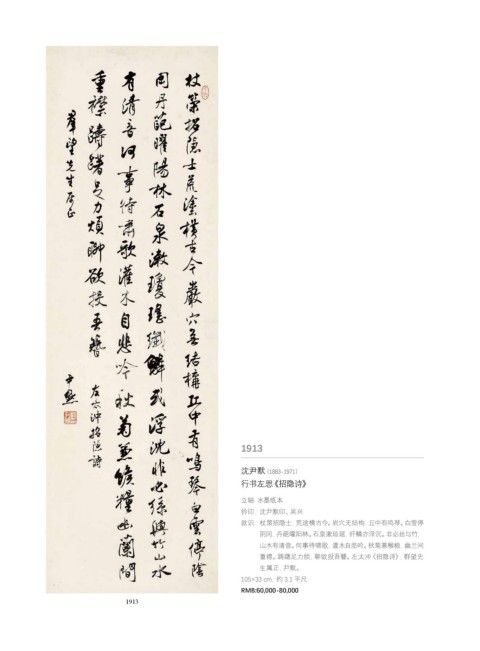 杖策招隱士荒塗橫古今巖穴無結構丘中有鳴琴白雲停陰
岡丹葩曜陽林石泉漱瓊瑤纖鱗或浮沈非必絲與竹山水
有清音何事待嘯歌灌木自悲吟秋菊兼餱糧幽蘭間
重襟躊躇足力煩聊欲投吾簪
左太沖招隱詩
羣望先生属正
尹默
1913
1913
沈尹默 (1883-1971)
行书左思《招隐诗》
立轴 水墨纸本
钤印：沈尹默印、吴兴
款识：杖策招隐士，荒途横古今。岩穴无结构，丘中有鸣琴。白雪停
阴冈，丹葩曜阳林。石泉漱琼瑶，纤鳞亦浮沉。非必丝与竹，
山水有清音。何事待啸歌，灌木自悲吟。秋菊兼糇粮，幽兰间
重襟。踌躇足力烦，聊欲投吾簪。左太冲《招隐诗》，群望先
生属正，尹默。
105×33 cm. 约 3.1 平尺
RMB:60,000-80,000